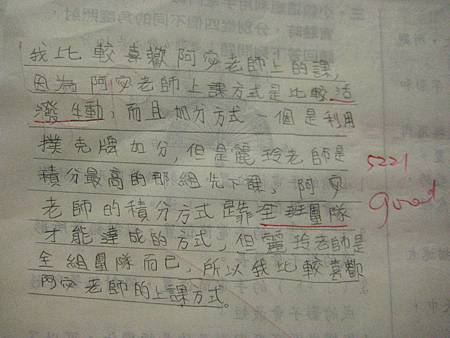 我比較喜歡阿安老師上的課,
因為阿安老師上課方式是比較活
潑生動,而且加分方式一個是利用
撲克牌加分,但是麗玲老師是
積分最高的那組先下課,阿安
老師的積分方式是靠全班團隊
才能達成的方式,但麗玲老師是
全組團隊而已,所以我比較喜歡
阿安老師的上課方式。
5221
good